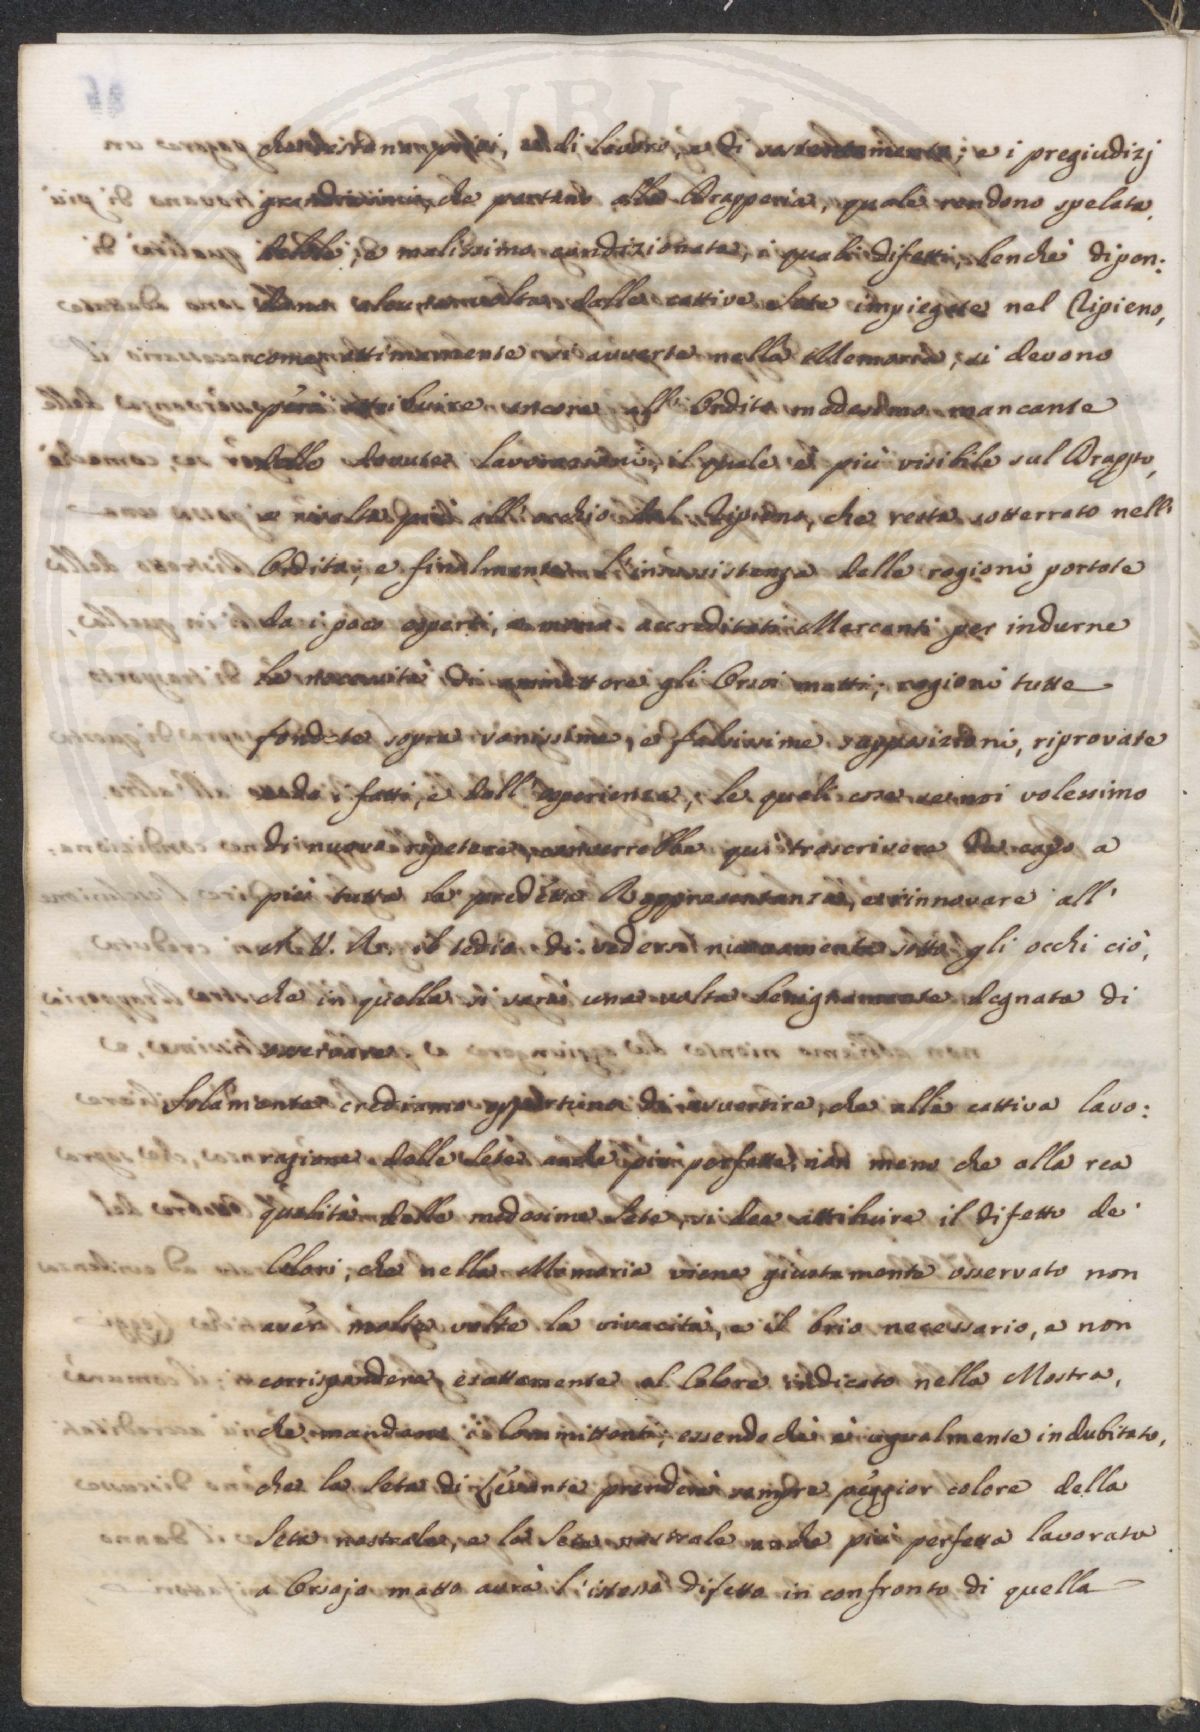 che restano privi, e di lavoro, e di sostentamento; e i pregiudizj
grandissimi, che portano alla Drapperia, quale rendono spelata,
debole, e malissimo condizionata, i quali difetti, benchè dipen:
dano alcuna volta dalle cattive Sete impiegate nel Ripieno,
come ottimamente si avverte nella Memoria, si devono
però attribuire ancora all' Ordito medesimo mancante
delle dovute lavorazioni, il quale è più visibile sul Drappo,
e risalta più all' occhio del Ripieno, che resta sotterrato nell'
Ordito; e finalmente l'insussistenza delle ragioni portate
da i poco esperti, e meno accreditati Mercanti per indurne
la necessità di ammettere gli Orsoi matti; ragioni tutte
fondate sopra vanissime, e falsissime supposizioni, riprovate
da i fatti, e dall' esperienza, le quali cose se noi volessimo
di nuovo repetere, converrebbe qui trascrivere da capo a
piè tutta la predetta Rappresentanza, e rinnovare all'
A. V. R. il tedio di vedersi nuovamente sotto gli occhi ciò,
che in quella si sarà una volta benignamente degnata di
osservare
Solamente crediamo opportuno di avvertire, che alla cattiva lavo:
razione delle Sete anche più perfette, non meno che alla rea
qualità delle medesime Sete, si dee attribuire il difetto de'
Colori, che nella Memoria viene giustamente osservato non
aver molte volte la vivacità, e il brio necessario, e non
corrispondere esattamente al Colore indicato nella Mostra,
che mandano i Committenti; essendo che è ugualmente indubitato,
che la Seta di Levante prenderà sempre peggior colore della
Seta nostrale, e la Seta nostrale anche più perfetta lavorata
a Orsojo matto avrà l'istesso difetto in confronto di quella